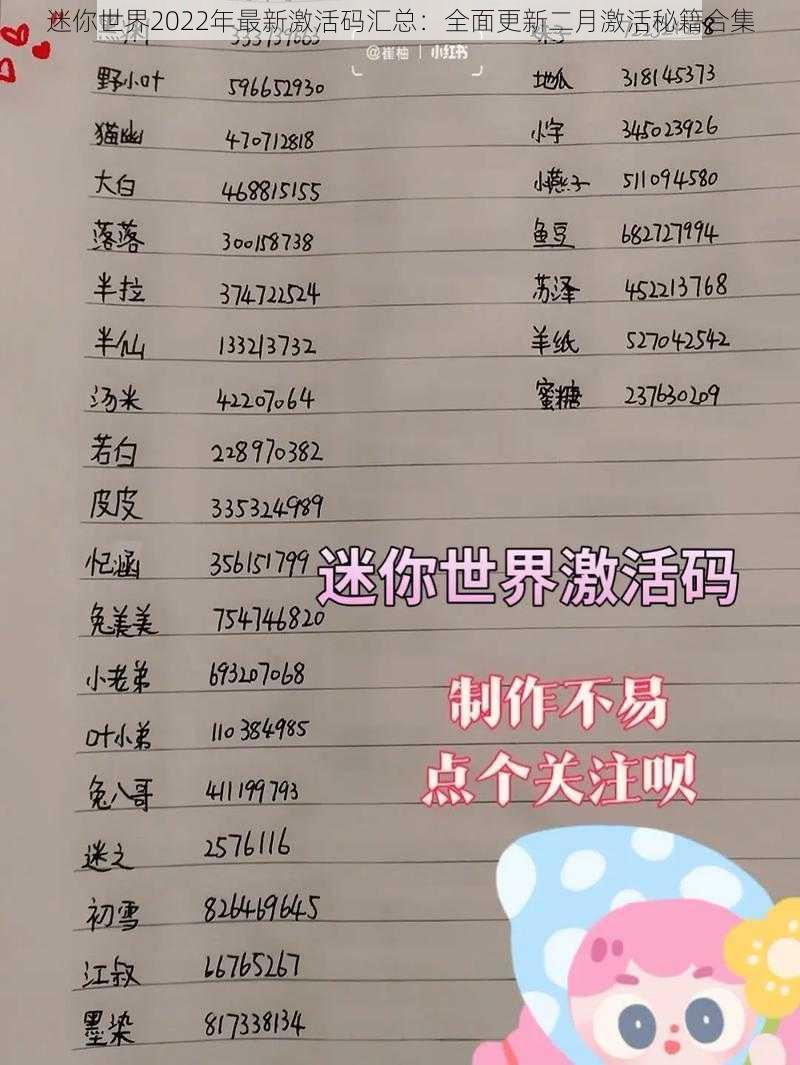 迷你世界2022年最新激活码汇总：全面更新二月激活秘籍合集
@崔柚 | 小红书
野小叶 596652930
猫幽 470712818
大白 468815155
落落 300158738
半拉 374722524
半仙 133213732
汤米 42207064
若白 228970382
皮皮 335324989
忆涵 356151799
兔美美 754746820
小老弟 693207068
叶小弟 110384985
兔八哥 411199793
迷之 2576116
初雪 826469645
江叔 66765267
墨染 817338134
地瓜 318145373
小字 345023926
小燕子 511094580
鱼豆 682727994
苏泽 452213768
羊纸 527042542
蜜糖 237630209
迷你世界激活码
制作不易
点个关注呗